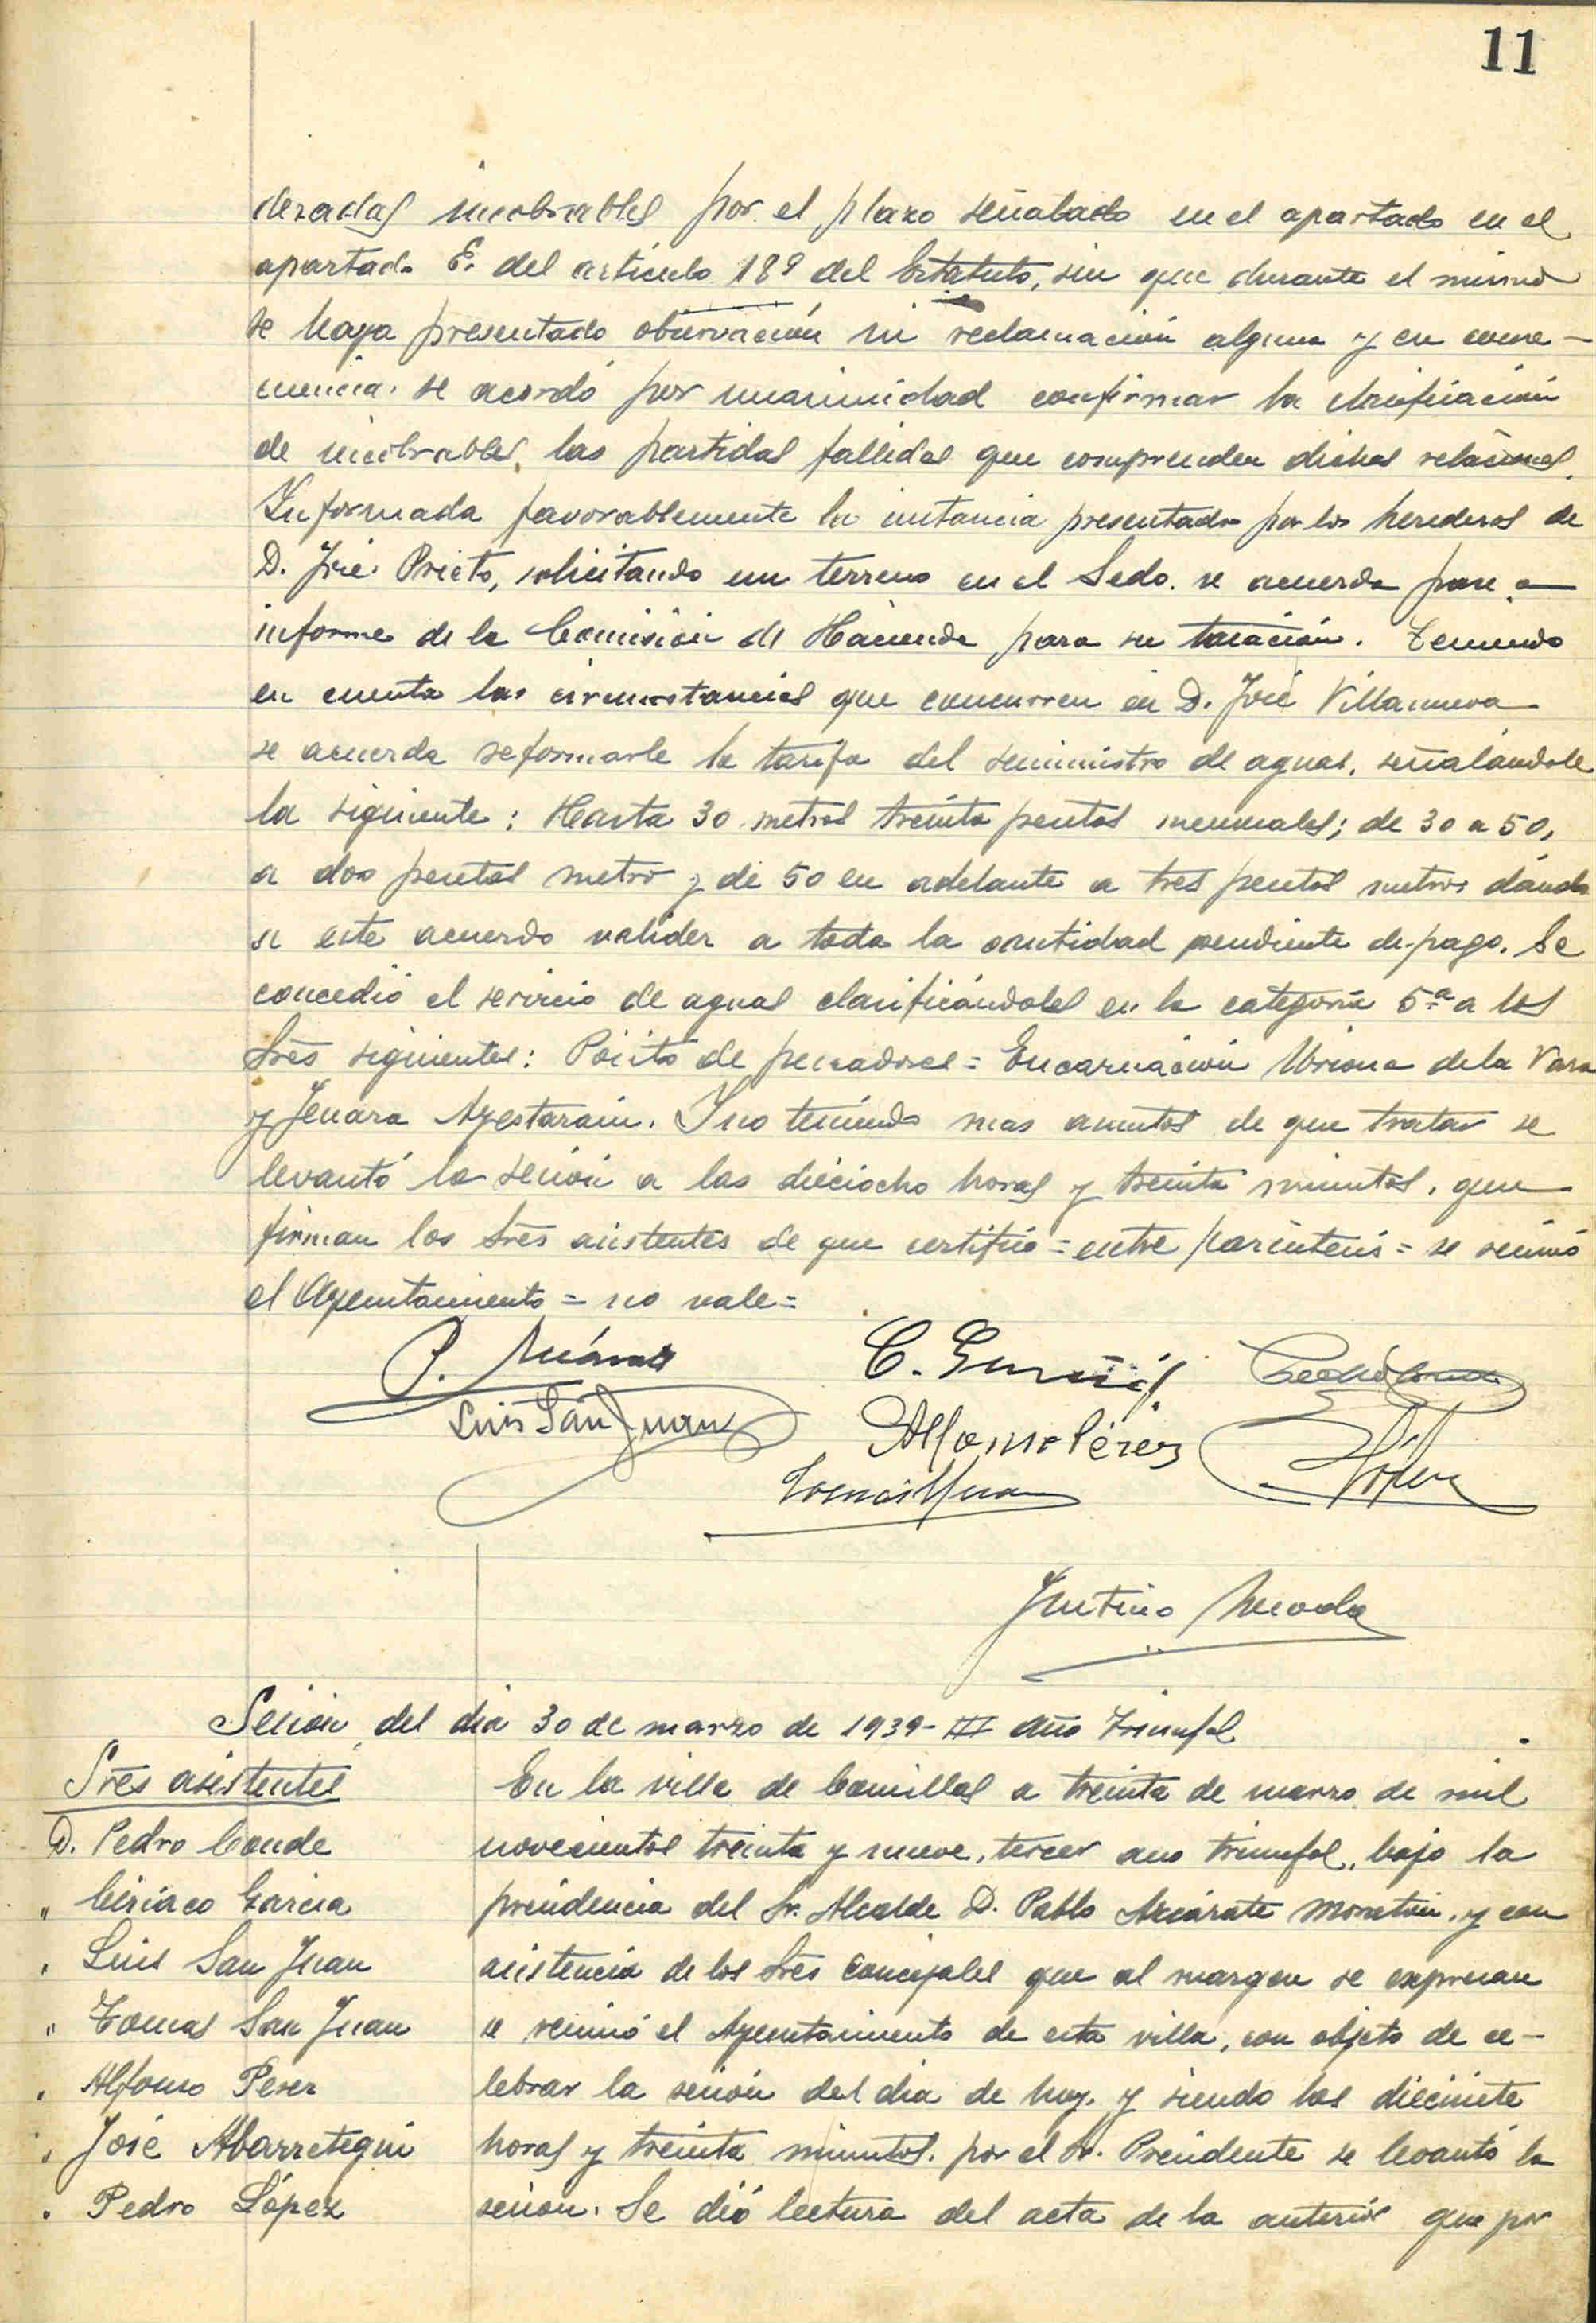 11
deradas incobrables por el plazo señalado en el apartado en el
apartado E. del artículo 189 del Estatuto, sin que durante el mismo
se haya presentado observación ni reclamación alguna y en conse-
cuencia se acordó por unanimidad confirmar la clasificación
de incobrables, las partidas fallidas que comprenden dichas relaciones.
Informada favorablemente la instancia presentada por los herederos de
D. José Prieto, solicitando un terreno en el Sedo. se acuerda pase a
informe de la Comisión de Hacienda para su tasación. Teniendo
en cuenta las circunstancias que concurren en D. José Villanueva
se acuerda reformarle la tarifa del suministro de aguas, señalándole
la siguiente: Hasta 30 metros treinta pesetas mensuales; de 30 a 50,
a dos pesetas metro y de 50 en adelante a tres pesetas metro, dándo
se este acuerdo validez a toda la cantidad pendiente de pago. Se
concedió el servicio de aguas clasificándoles en la categoria 5ª a los
Sres siguientes: Pósito de pescadores = Encarnación de la Vara
y Jenara Ayestarain. Y no teniendo mas asuntos de que tratar se
levantó la sesión a las dieciocho horas y treinta minutos, que
firman los Sres asistentes de que certifico = entre paréntesis = se reunió
el Ayuntamiento = no vale =
P. Azcárate C. García Pedro Conde
Luis San Juan Alfonso Pérez P. López
Tomás San Juan
Justino
Sesión del día 30 de marzo de 1939- III Año Triunfal
Sres asistentes
D. Pedro Conde
" Ciriaco Garcia
" Luis San Juan
" Tomas San Juan
" Alfonso Perez
" José Abarretegui
" Pedro López
En la villa de Comillas a treinta de marzo de mil
novecientos treinta y nueve, tercer ano triunfal, bajo la
presidencia del Sr. Alcalde D. Pablo Azcárate Moratin, y con
asistencia de los Sres Concejales que al margen se expresan
se reunió el Ayuntamiento de esta villa, con objeto de ce-
lebrar la sesión del dia de hoy, y siendo las diecisiete
horas y treinta minutos, por el Sr. Presidente se levantó la
sesion. Se dió lectura del acta de la anterior que por